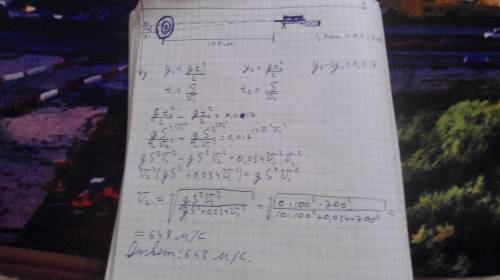 100 м
1,7 см = 0,017 м
y₁ = gt₁²/2 y₂ = gt₂²/2 y₂ - y₁ = 0,017
t₁ = S/v₁ t₂ = S/v₂
gt₂²/2 - gt₁²/2 = 0,017
gS²/2v₂² - gS²/2v₁² = 0,017
gS²v₁² = gS²v₂² + 0,034v₁²v₂²
v₂²(gS² + 0,034v₁²) = gS²v₁²
v₂ = √(gS²v₁²/(gS² + 0,034v₁²)) = √(10·100²·700²/(10·100² + 0,034·700²)) =
= 648 м/с
Ответ: 648 м/с.